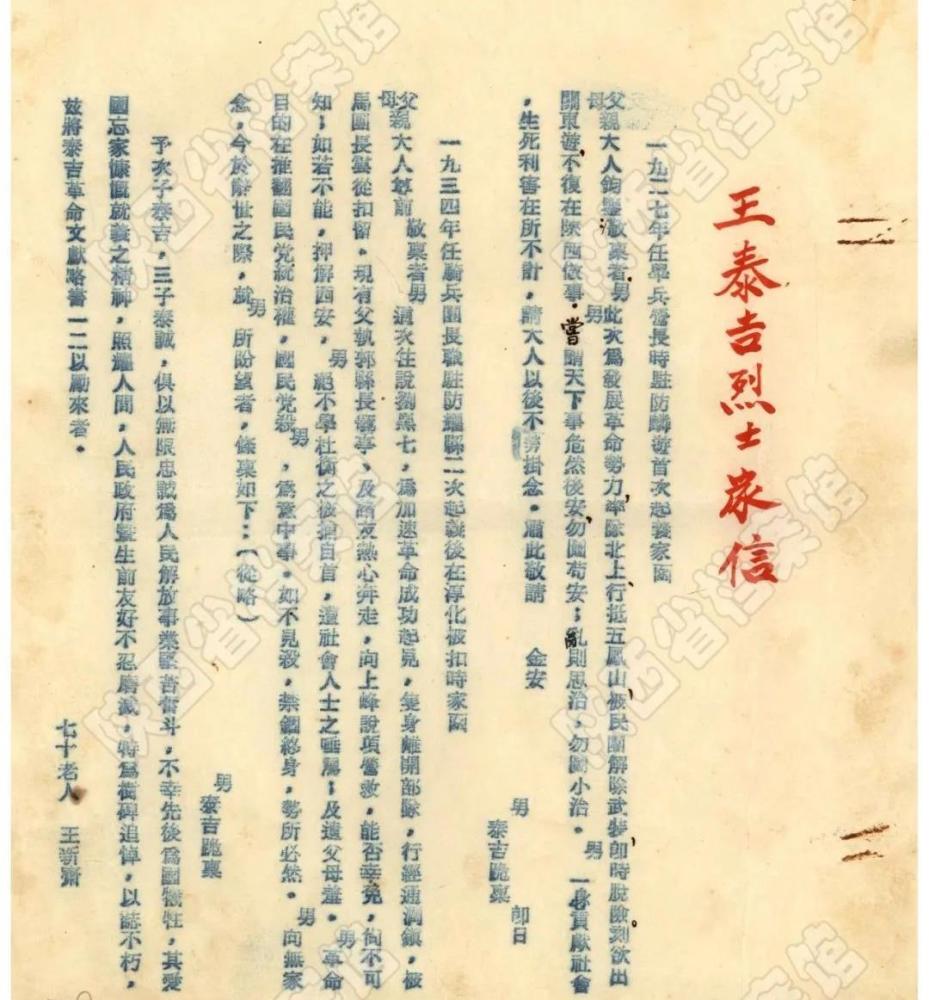 王泰吉烈士家信
一九二七年任學兵營長時駐防麟遊首次起義家函
父母親大人鈞鑒敬稟者男此次為發展革命勢力率隊北上行抵五鳳山被民團解除武裝即時脫險刻欲出
關東遊不復在陝西做事嘗謂天下事危然後安勿圖苟安；亂則思治，勿圖小治。男一身貢獻社會
，生死利害在所不計，請大人以後不勞掛念。肅此敬請 金安
男
泰吉跪稟 即日
一九三四年任騎兵團長職駐防耀縣二次起義後在淳化被扣時家函
父母親大人尊前敬稟者男 道次往說劉黑七，為加速革命成功起見，隻身離開部隊，行經通潤鎮，被
馬團長雲從扣留。現有父執郭縣長 事、及諸友熱心奔走，向上峰說項營救，能否幸免，尚不可
知；如若不能，押解西安，男絕不學杜衡之被捕自首，遺社會人士之唾罵；及遺父母羞。男革命
目的在推翻國民党統治權，國民党殺男，為意中事。如不見殺，禁錮終身，勢所必然。男向無家
念，今於辭世之際，就男所盼望者，條稟如下：（從略）
男
泰吉跪稟
予次子泰吉，三子泰誠，俱以無限忠誠為人民解放事業堅苦奮斗，不幸先後為國犧牲，其愛
國忘家慷慨就義之精神，照耀人間，人民政府暨生前友好不忍磨滅，特為樹碑追悼，以誌不朽，
玆將泰吉革命文獻略書一二以勵來者。
七十老人 王新齋
陕西省档案馆